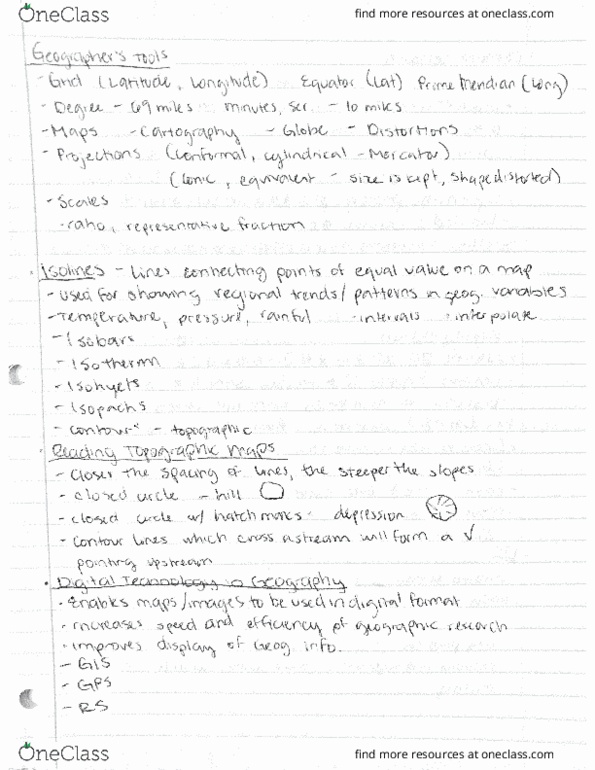 OneClass
find more resources at oneclass.com
Geographer's Tools
- Grid (Latitude, Longitude) Equator (Lat) Prime Meridian (Long)
- Degree - 69 miles minutes, sec. - 10 miles
- Maps - Cartography - Globe - Distortions
- Projections (conformal, cylindrical - Mercator)
(conic, equivalent - size is kept, shape distorted)
- Scales
- ratio, representative fraction
· Isolines - lines connecting points of equal value on a map
- used for showing regional trends/patterns in geog. variables
- Temperature, pressure, rainful · intervals · interpolate
- Isobars
- Isotherm
- Isohyets
- Isopachs
- contour - topographic
· Reading Topographic Maps
- Closer the spacing of lines, the steeper the slopes
- closed circle - hill
- closed circle w/ hatchmarks - depression
- contour lines which cross a stream will form a V
pointing upstream
· Digital Technology in Geography
· Enables maps/images to be used in digital format
· increases speed and efficiency of geographic research
· improves display of Geog info.
- GIS
- GPS
- RS
OneClass
find more resources at oneclass.com